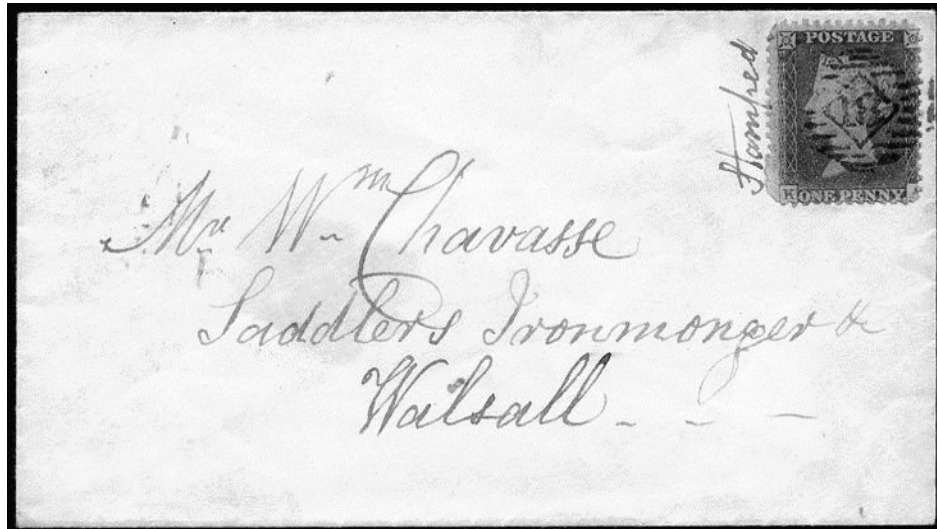 Stamped
POSTAGE
18
K ONE PENNY A
Mr. Wm Chavasse
Saddlers Ironmonger &c
Walsall - - -